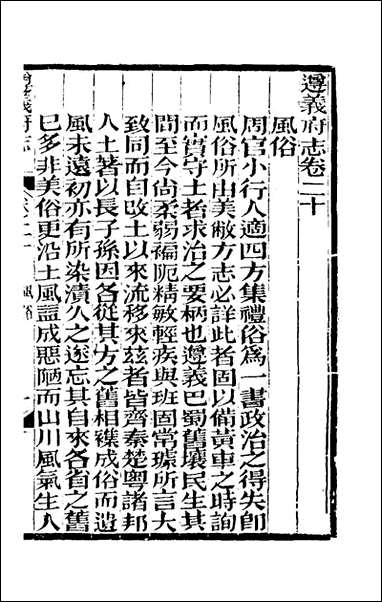 遵義府志卷二十
風俗
周官小行人適四方集禮俗爲一書政治之得失卽
風俗所由美敝方志必詳此者固以備黃車之時詢
而實守土者求治之要柄也遵義巴蜀舊壤民生其
間至今尙柔弱褊阨精敏輕疾與班固常璩所言大
致同而自改土以來流移來玆者皆齊秦楚粵諸邦
人土著以長子孫因各從其方之舊相襍成俗而遺
風未遠初亦有所染漬久之遂忘其自來各省之舊
巳多非美俗更沿土風益成惡陋而山川風氣生人